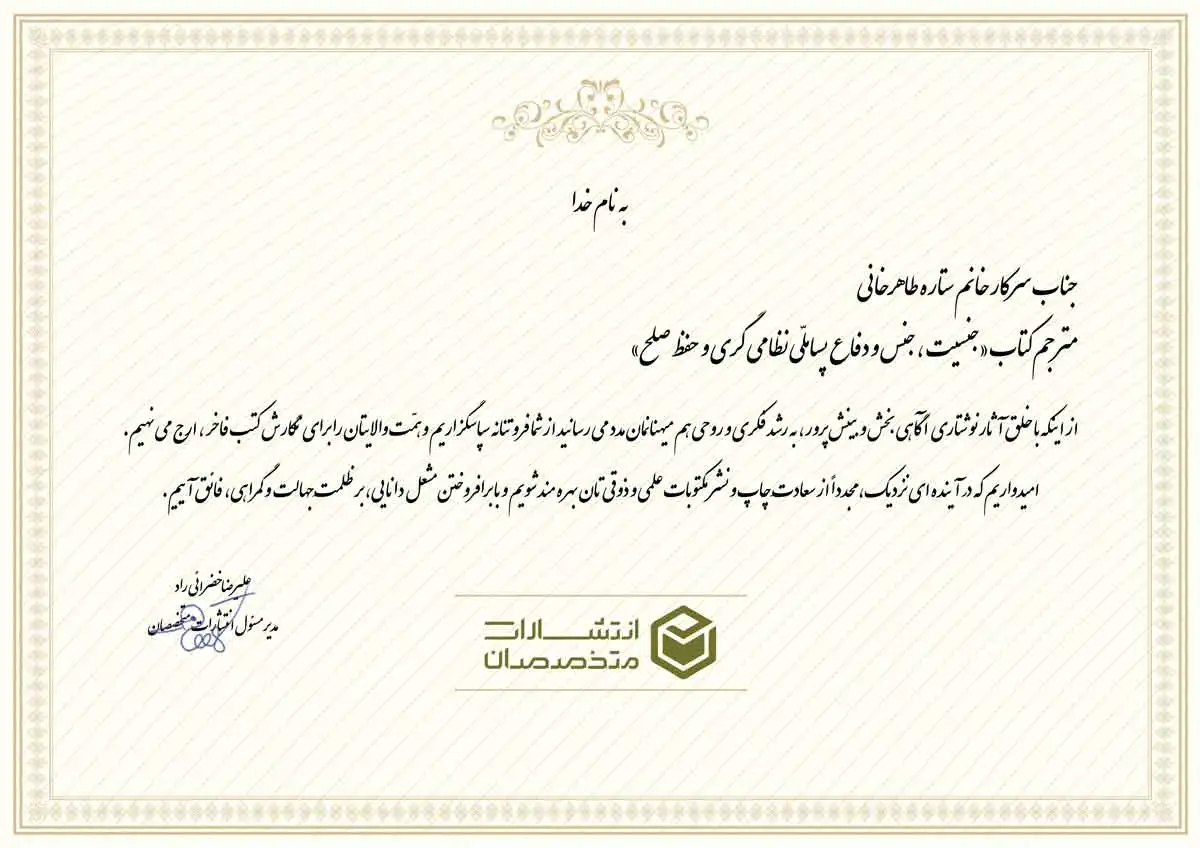 به نام خدا
جناب سرکار خانم ستاره طاهرخانی
مترجم کتاب «جنسیت، جنس و دفاع پساملّی نظامی گری و حفظ صلح»
از اینکه با خلق آثار نوشتاری آگاهی بخش و بینش پرور، به رشد فکری و روحی هم میهنانمان مدد می رسانید از شما فروتنانه سپاسگزاریم و همّت والایتان را برای نگارش کتب فاخر، ارج می نهیم.
امیدواریم که در آینده ای نزدیک، مجدداً از سعادت چاپ و نشر مکتوبات علمی و ذوقی تان بهره مند شویم و با برافروختن مشعل دانایی، بر ظلمت جهالت و گمراهی، فائق آییم.
علیرضا خضرائی راد
مدیر مسئول انتشارات متخصصان
انتشارات
متخصصان